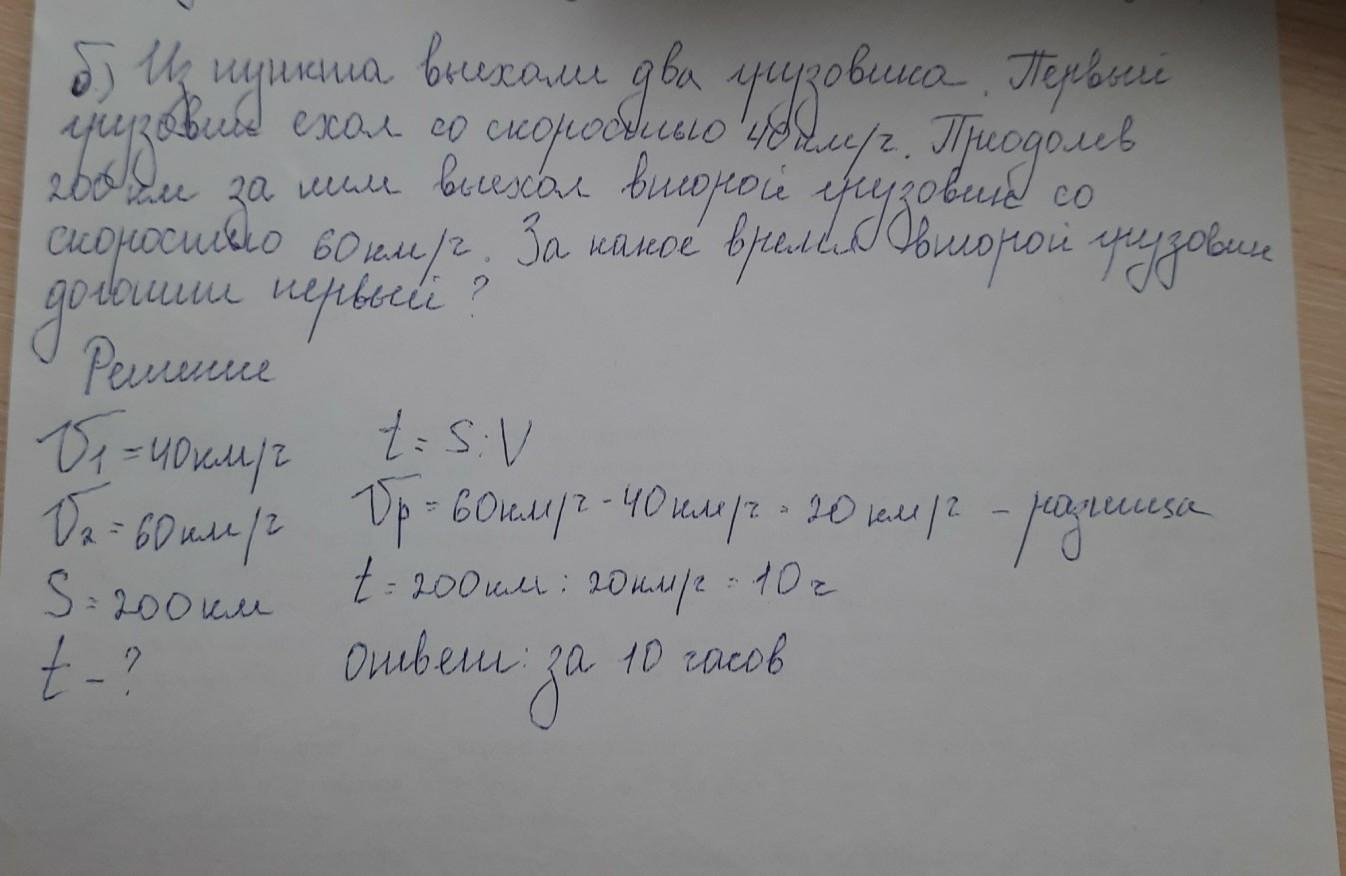 б) Из пункта выехали два грузовика. Первый
грузовик ехал со скоростью 40км/ч. Приодолев
200км за ним выехал второй грузовик со
скоростью 60км/ч. За какое время второй грузовик
догонит первый?
Решение
V1=40км/ч t=S:V
V2=60км/ч Vр=60км/ч-40км/ч=20км/ч - разница
S=200км t=200км:20км/ч=10ч
t-? ответ: за 10 часов